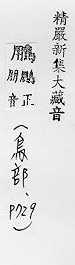 精嚴新集大藏音
鵬正
朋音
(鳥部, P729)